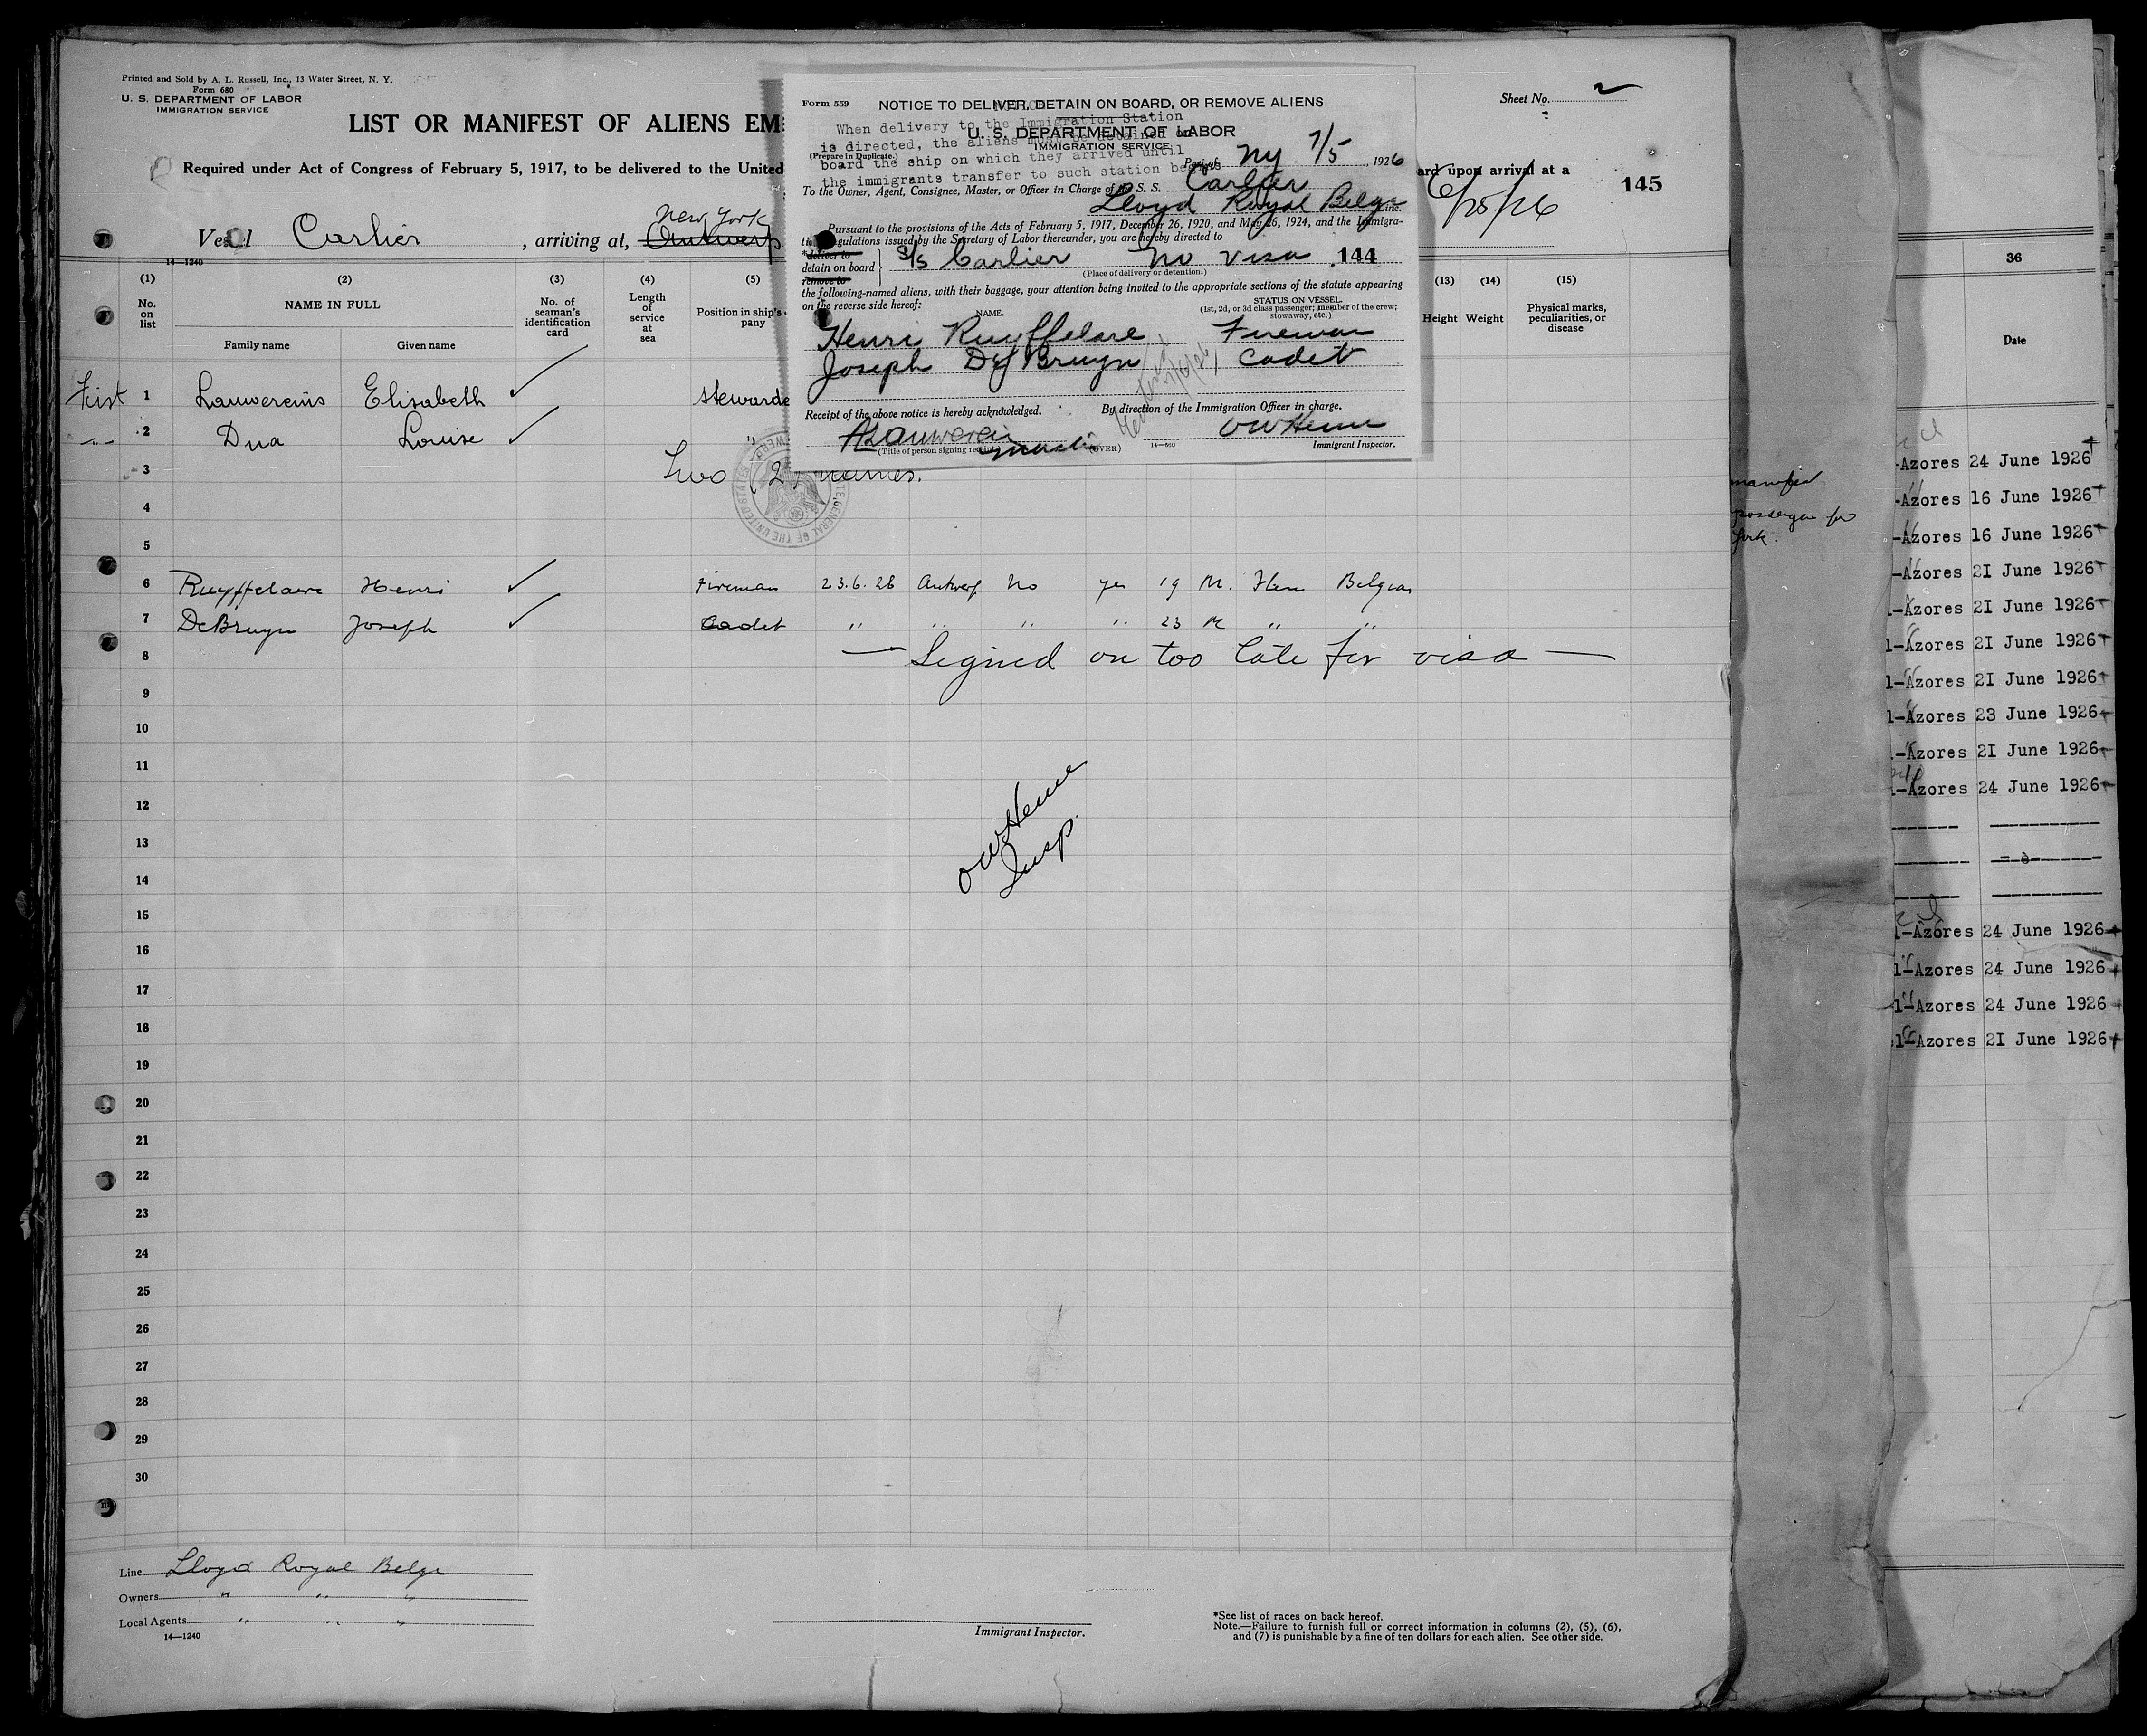 Printed and Sold by A. L. Russell, Inc., 13 Water Street, N. Y.
Form 680
U. S. DEPARTMENT OF LABOR
IMMIGRATION SERVICE
Sheet No. 2
LIST OR MANIFEST OF ALIENS EM
Required under Act of Congress of February 5, 1917, to be delivered to the United
ard upon arrival at a
145
6/25/26
New York
Vessel Carlier, arriving at, Antwerp
14—1240
(1) (2) (3) (4) (5) (13) (14) (15)
No. on list
NAME IN FULL
Family name Given name
No. of seaman's identification card
Length of service at sea
Position in ship's
pany
Height Weight
Physical marks, peculiarities, or disease
Form 559
NOTICE TO DELIVER, DETAIN ON BOARD, OR REMOVE ALIENS
When delivery to the Immigration Station
is directed, the aliens must be detained on
board the ship on which they arrived until
the immigrants transfer to such station begins
U. S. DEPARTMENT OF LABOR
IMMIGRATION SERVICE
(Prepare in Duplicate.)
Port of NY 7/5, 1926
To the Owner, Agent, Consignee, Master, or Officer in Charge of the S. S. Carlier
Lloyd Royal Belge Inc.
Pursuant to the provisions of the Acts of February 5, 1917, December 26, 1920, and May 26, 1924, and the Immigra-
tion Regulations issued by the Secretary of Labor thereunder, you are hereby directed to
*deliver to
detain on board
remove to
S/S Carlier No visa 144
(Place of delivery or detention.)
the following-named aliens, with their baggage, your attention being invited to the appropriate sections of the statute appearing
on the reverse side hereof:
NAME.
STATUS ON VESSEL.
(1st, 2d, or 3d class passenger; member of the crew; stowaway, etc.)
Henri Ruyffelare Fireman
Joseph De Bruyn Cadet
Receipt of the above notice is hereby acknowledged.
By direction of the Immigration Officer in charge.
Master
OW Heme
(Title of person signing receipt.)
(OVER)
14—560
Immigrant Inspector.
First 1 Lauwereins Elisabeth stewarde
" 2 Dua Louise "
3 Two (2) names.
4
5
6 Ruyffelaere Henri Fireman 23.6.26 Antwerp No yes 19 M. Flem Belgian
7 DeBruyn Joseph Cadet " " " " 23 M " "
8 — Signed on too late for visa —
9
10
11
12
13
14
15
16
17
18
19
20
21
22
23
24
25
26
27
28
29
30
OW Heme
Insp.
Line Lloyd Royal Belge
Owners " " "
Local Agents " " "
14—1240
Immigrant Inspector.
*See list of races on back hereof.
Note.—Failure to furnish full or correct information in columns (2), (5), (6),
and (7) is punishable by a fine of ten dollars for each alien. See other side.
manifest
passenger for
York.
36
Date
-Azores 24 June 1926
-Azores 16 June 1926
-Azores 16 June 1926
-Azores 21 June 1926
-Azores 21 June 1926
l-Azores 21 June 1926
l-Azores 21 June 1926
l-Azores 23 June 1926
-Azores 21 June 1926
-Azores 24 June 1926
l-Azores 24 June 1926
l-Azores 24 June 1926
l-Azores 24 June 1926
l-Azores 21 June 1926